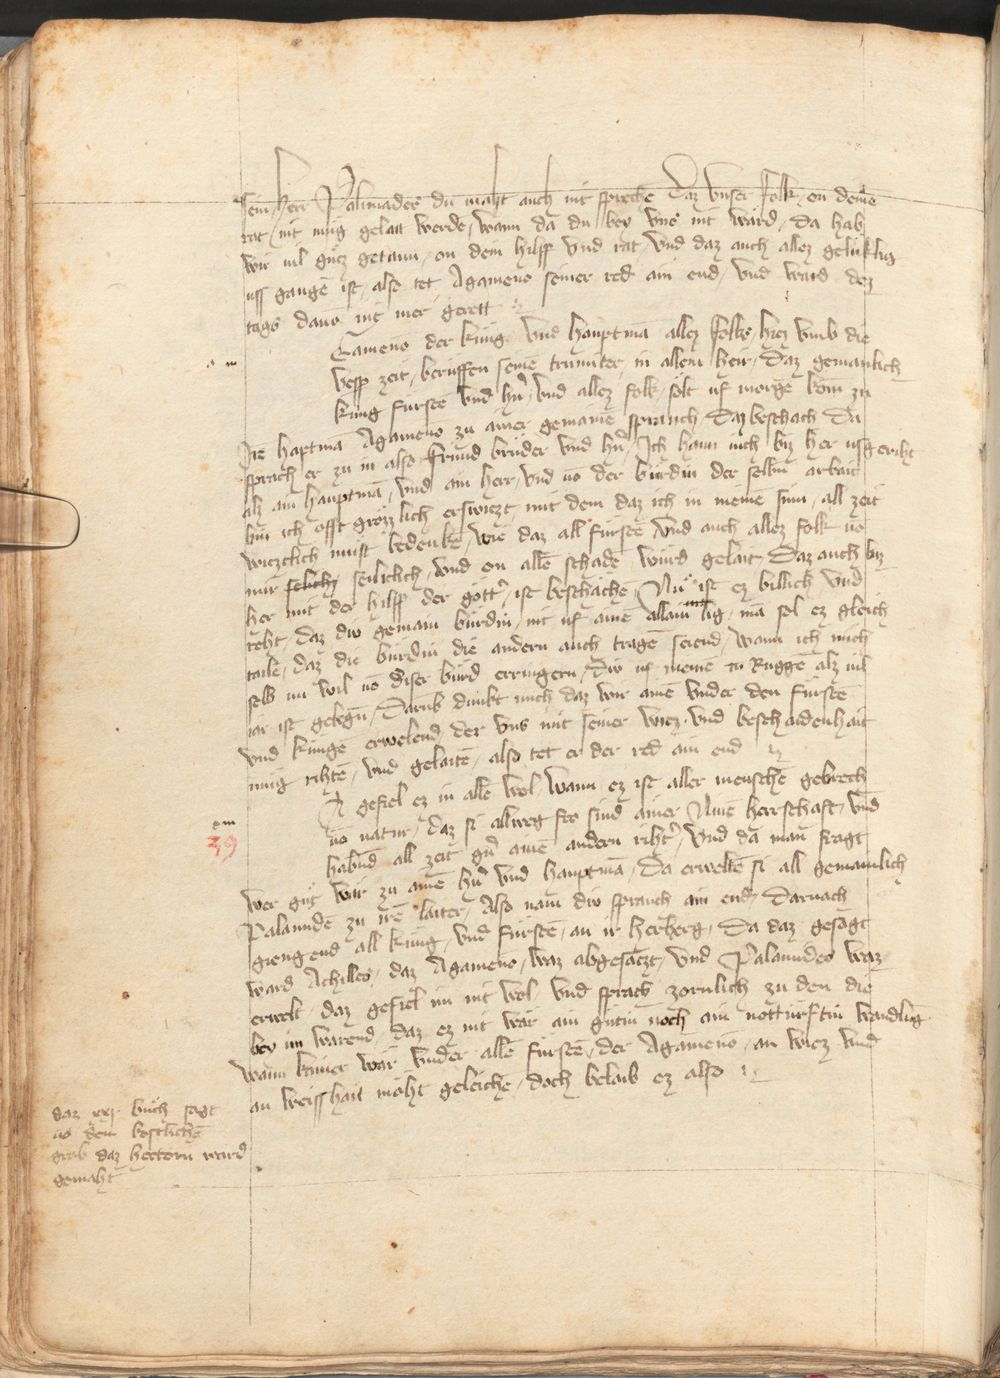 sem herr Palimades du maht auch nit sprechē Daz vnser folk on deinē
rat nit mug gelait werdē wann da du bey vns nit ward da hab
wir vil gutz getann on dein hilff vnd rat vnd daz auch allez gelüklig
uss gangē ist also tet Agamenō seiner red ain end vnd ward dez
tags dauō nit mer gerett
Gamenō der küng vnd hauptmā allez folks hiez vmb die
vesp zeit berüffen seinē trumiter in allem heir Daz gemainlich
küng fürstē vnd hr̄ vnd allez folk solt uf morgē kom̄ zu
Irē haptmā Agamenō zu ainer gemainē sprauch Daz beschach Da
sprach er zu in also fründ brüder vnd hr̄ Ich hann uich biz her usgeriht
alz ain hauptmā vnd ain herr vnd uō der bürdin der selbn̄ arbait
bin ich offt grözlich erswiczt mit dem daz ich in meinē sinn all zeit
wiczclich must bedenkē wie daz all fürstē vnd auch allez folk uō
mir seliclich vnd on allē schadē würd gelait Daz auch biz
her mit der hilff der götr̄ ist beschächē Nü ist ez billich vnd
reht daz diu gemain bürdin nit uf ainē allain lig mā sol ez gleich
tailē daz die bürdin die andern auch tragē seiend wann ich mich
selb nu wil uō diser bürd erringern diu uf meinē Ruggē alz vil
iar ist gelegn̄ Darūb dunkt mich daz wir ainē vnder den fürstē
vnd küngē erwelend der vns mit seiner wicz vnd beschaidenhait
mug rihtē vnd gelaitē also tet er der red ain end
A gefiel ez in allē wol wann ez ist aller menschē gebrech
uō natur daz si allweg fro sind ainer Nüwē herrschaft vnd
habnd all zeit gn̄ ainē andern rihtr̄ vnd da man fragt
wer gut wär zu ainē hr̄ vnd hauptmā Da erweltē si all gemainlich
Palamidē zu irē laiter Also nam diu sprauch ain end Darnach
giengend all küng vnd fürstē an ir herberg Da daz gesagt
ward Achilles daz Agamenō waz abgesäczt vnd Palamides waz
erwelt daz gefiel im nit wol vnd sprach zornlich zu den die
bey im warend daz ez nit wär ain gutin noch ain notturftin wandlūg
wann kainer wär vnder allē fürstē der Agamenō an wicz vnd
an weisshait möht geleichē doch belaib ez also
39
daz xxj buch sagt
uō dem kostlichē
grab daz hectorn ward
gemaht